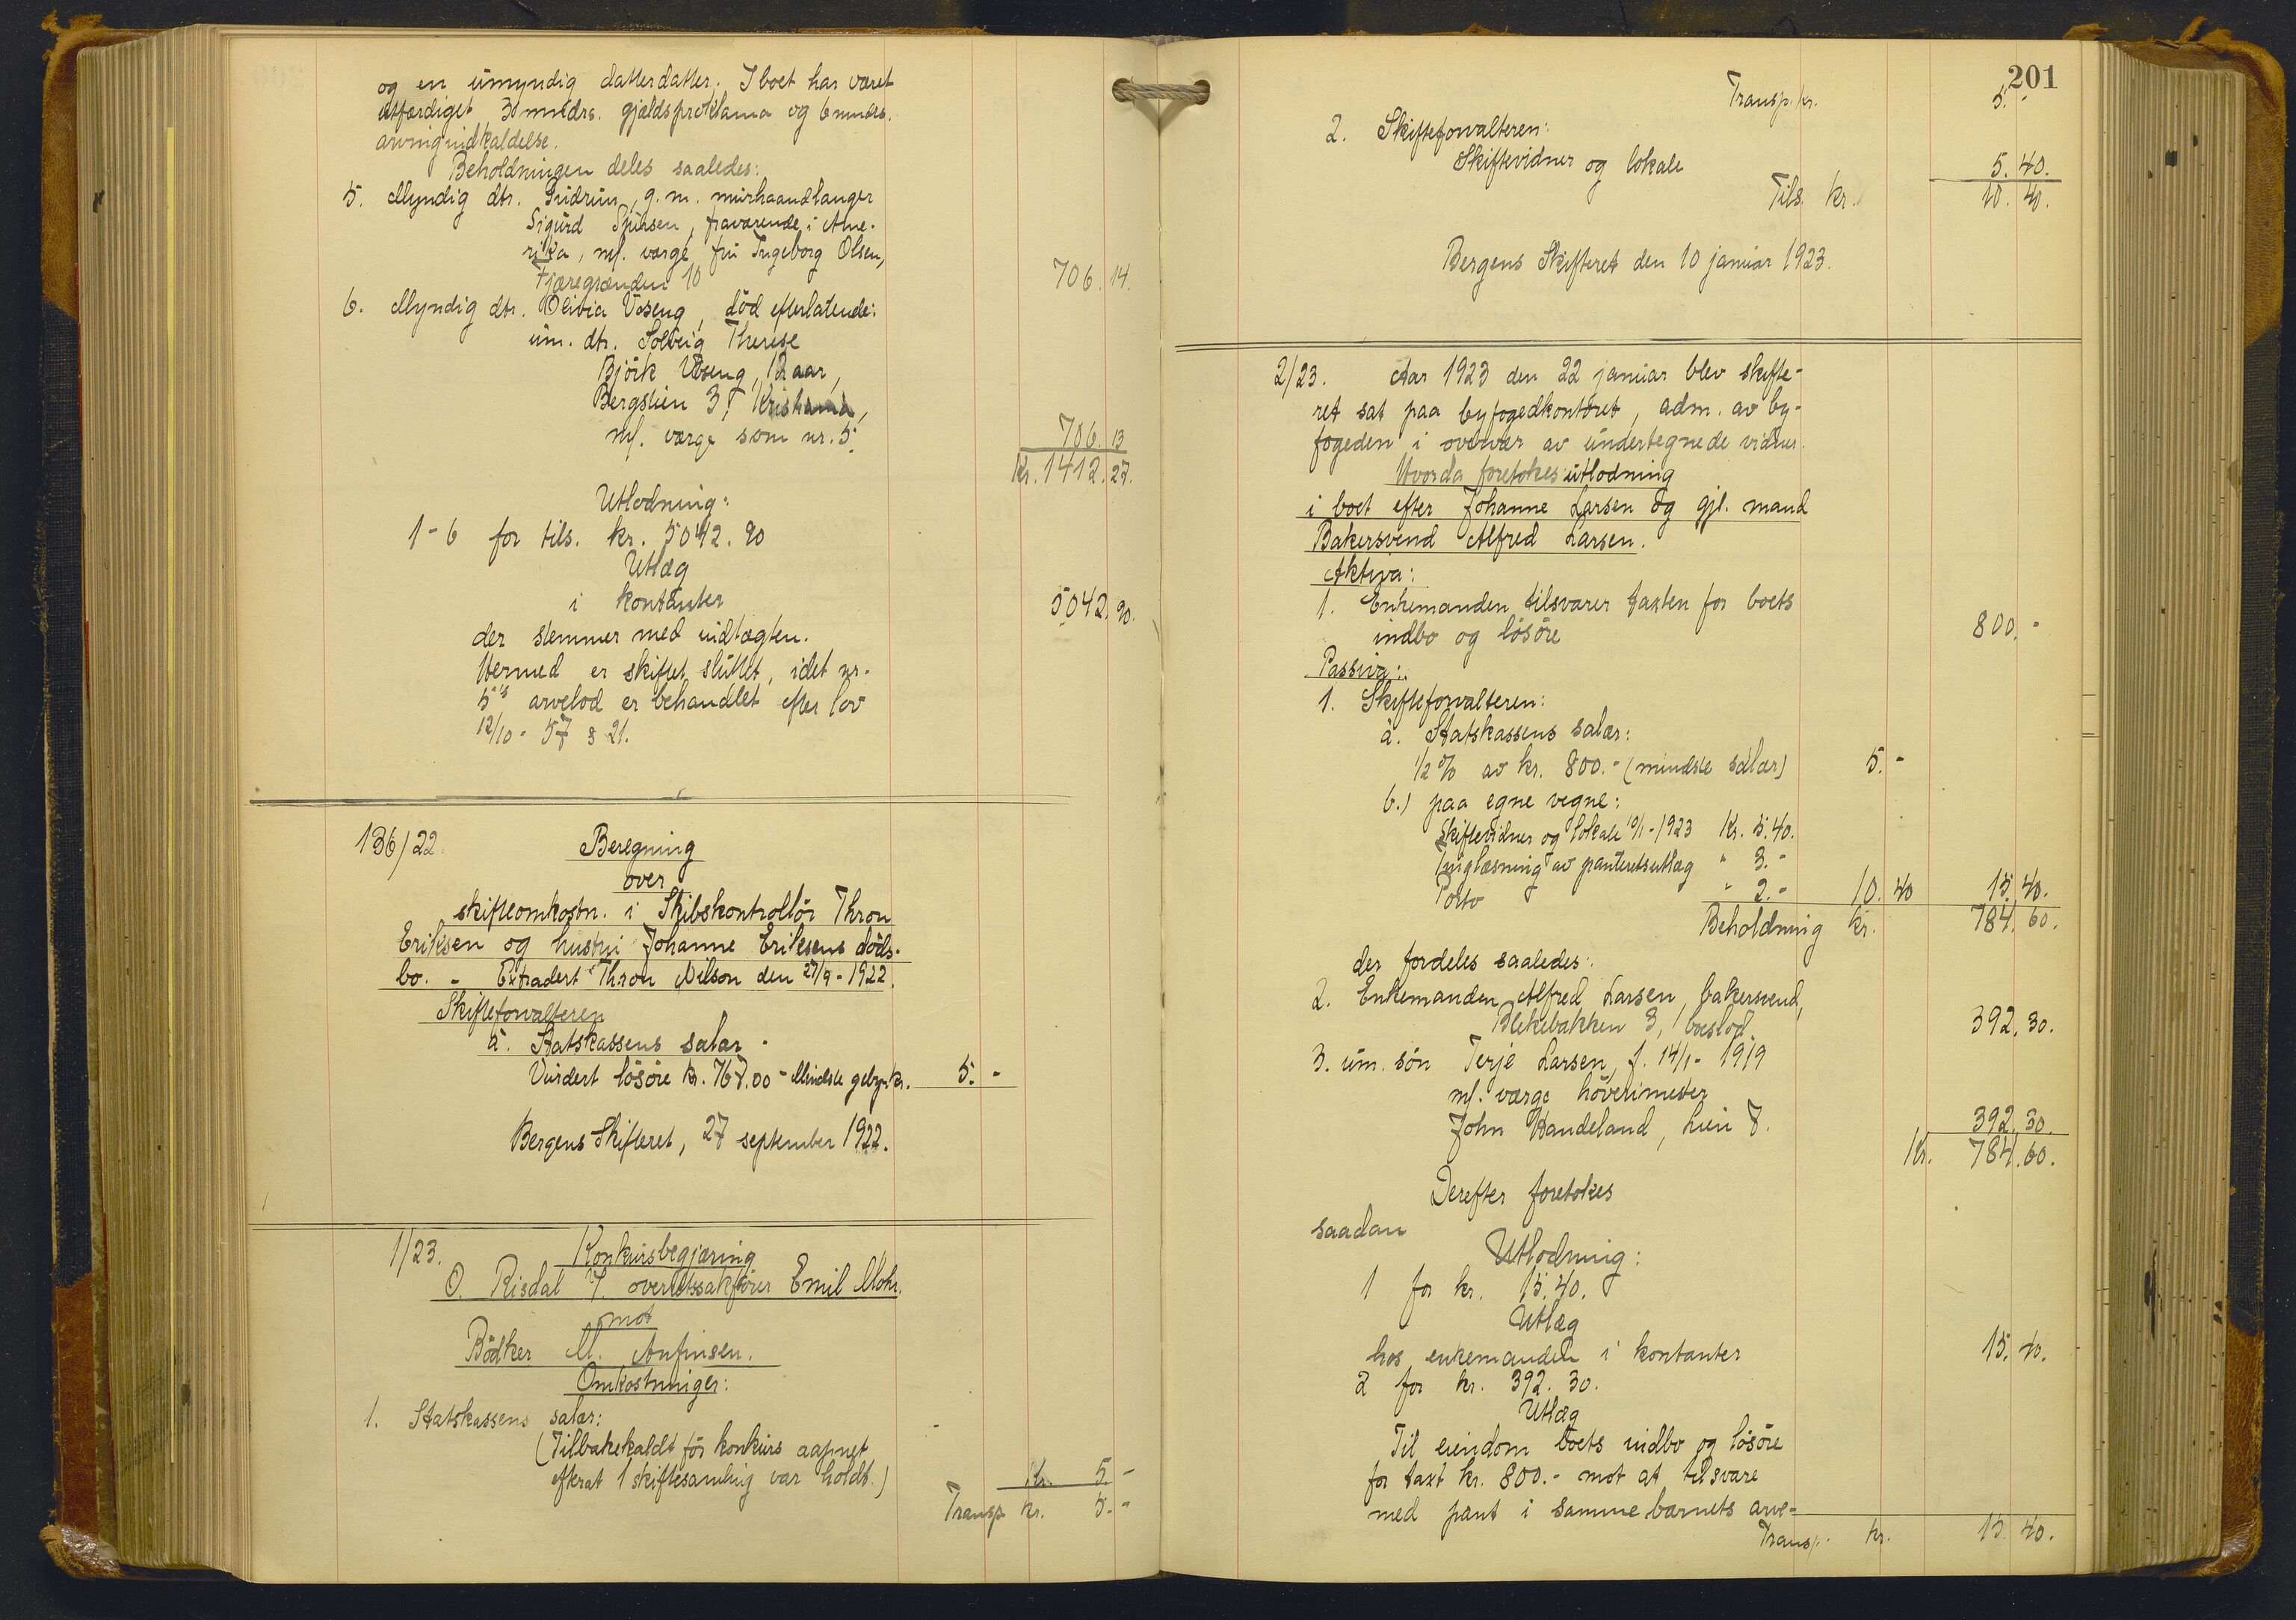 og en umyndig datterdatter. I boet har været
utfærdiget 3 mndrs. gjældsproklama og 6 mndrs.
arvingindkaldelse.
Beholdningen deles saaledes:
5. Myndig dtr. Gudrun, g. m. murhaandlanger
Sigurd Sjursen, fraværende i Ame-
rika, m/. værge fru Ingeborg Olsen,
Fjæregrænden 10 706. 14.
6. Myndig dtr. Olivia Voseng, död efterlatende:
um. dtr. Solveig Therese
Björk Voseng, 12 aar,
Bergslien 3, Kristiania,
m/. værge som nr. 5. 706. 13
Kr. 1412. 27.
Utlodning:
1-6 for tils. kr. 5042. 90
Utlæg
i kontanter 5042. 90.
der stemmer med indtægten.
Hermed er skiftet sluttet, idet nr.
5's arvelod er behandlet efter lov
12/10 - 57 § 21.
136/22. Beregning
over
skifteomkostn. i Skibskontrollör Thron
Eriksen og hustru Johanne Eriksens döds-
bo. - Extradert Thron Nilson den 27/9 - 1922.
Skifteforvalteren
a. Statskassens salær.
Vurdert lösöre kr. 767.00 - Mindste gebyr kr. 5. -
Bergens Skifteret, 27 september 1922.
1/23. Konkursbegjæring
O. Risdal v/. overretssakförer Emil Mohr.
mot
Bödker M. Anfinsen.
Omkostninger:
1. Statskassens salær:
(Tilbakekaldt för konkurs aapnet
efterat 1 skiftesamling var holdt.) Kr. 5. -
Transp. kr. 5. -
201
Transp. kr. 5. -
2. Skifteforvalteren:
Skiftevidner og lokale 5. 40.
Tils. kr. 10. 40.
Bergens Skifteret den 10 januar 1923.
2/23. Aar 1923 den 22 januar blev skifte-
ret sat paa byfogedkontoret, adm. av by-
fogeden i overvær av undertegnede vidner.
Hvorda foretokes utlodning
i boet efter Johanne Larsen og gjl. mand
Bakersvend Alfred Larsen.
Aktiva:
1. Enkemanden tilsvarer taxten for boets
indbo og lösöre 800. -
Passiva:
1. Skifteforvalteren:
a. Statskassens salær:
1/2 % av kr. 800.- (mindste salær) 5. -
b.) paa egne vegne:
Skiftevidner og lokale 10/1 - 1923 Kr. 5.40.
Tinglæsning av panteretsutlæg " 3. -
Porto " 2. - 10. 40 15. 40.
Beholdning kr. 784. 60.
der fordeles saaledes:
2. Enkemanden Alfred Larsen, bakersvend,
Blekebakken 3, boeslod. 392. 30.
3. um. sön Terje Larsen, f. 14/1 - 1919
m/. værge höverimester
John Handeland, Lien 8. 392. 30.
Kr. 784. 60.
Derefter foretokes
saadan
Utlodning:
1 for kr. 15. 40.
Utlæg
hos enkemanden i kontanter 15. 40.
2 for kr. 392. 30.
Utlæg
Til eiendom boets indbo og lösöre
for taxt kr. 800.- mot at tilsvare
med pant i samme barnets arve-
Transp. kr. 15. 40.